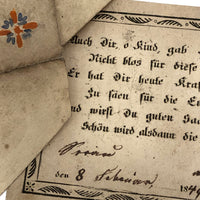 Auch Dir, o Kind, gab
Nicht blos für diese
Er hat Dir heute Kraft
Zu säen für die
und wirst Du guten Saa
Schön wird alsdann die
den 8 Februar 184